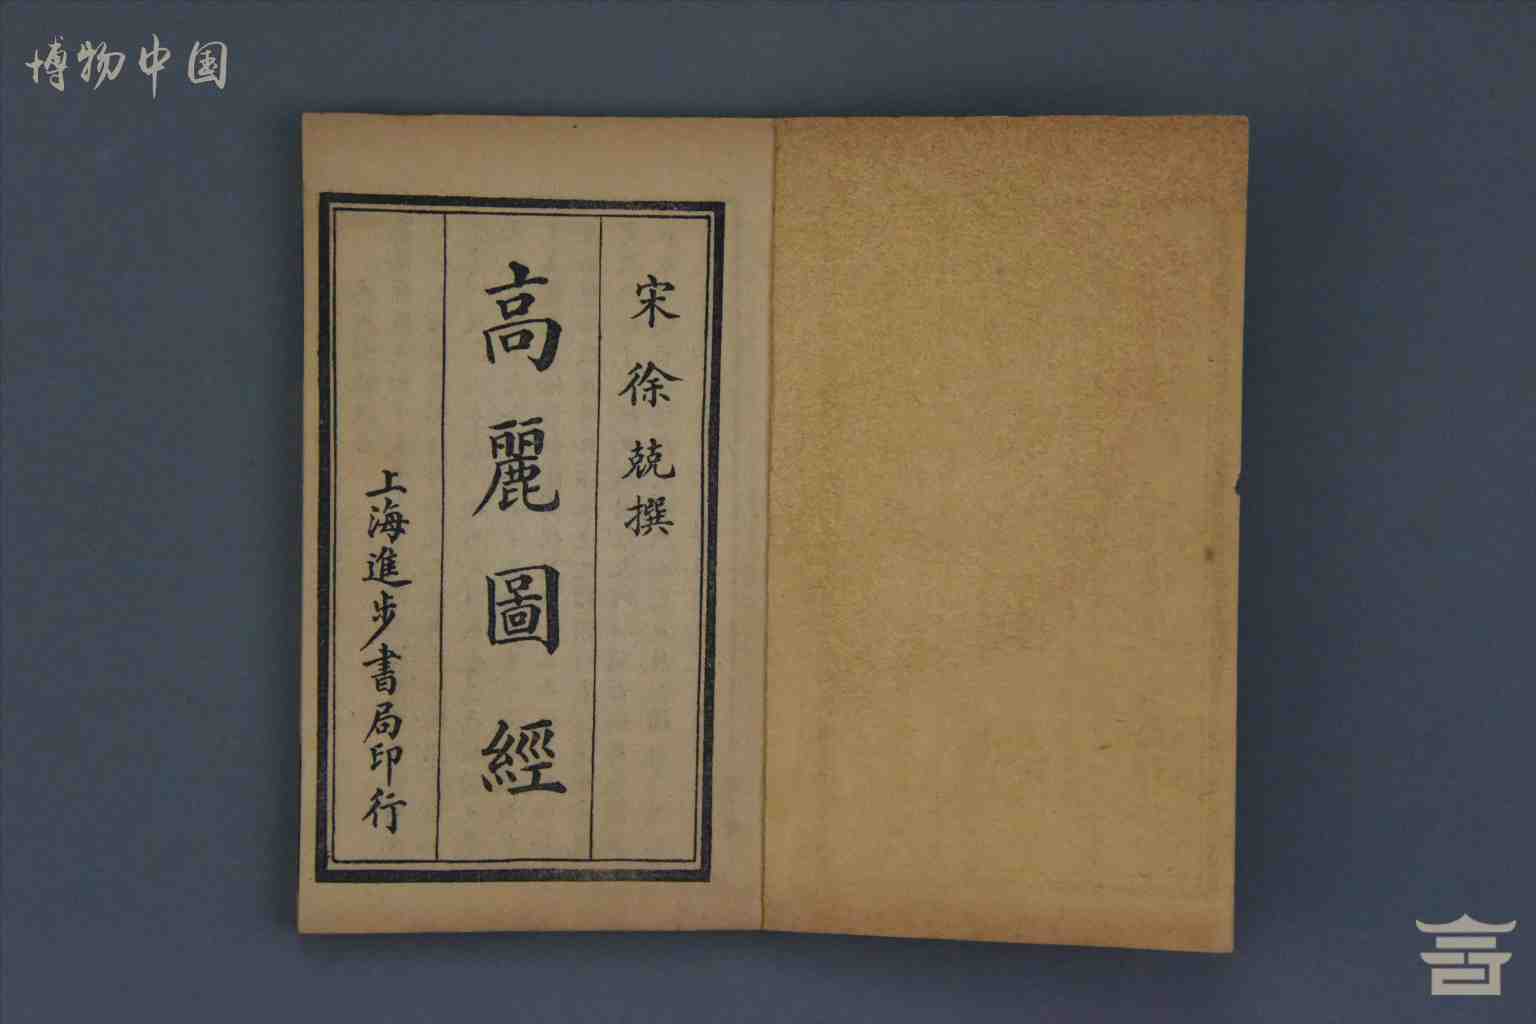 博物中国
宋徐兢撰
高麗圖經
上海進步書局印行